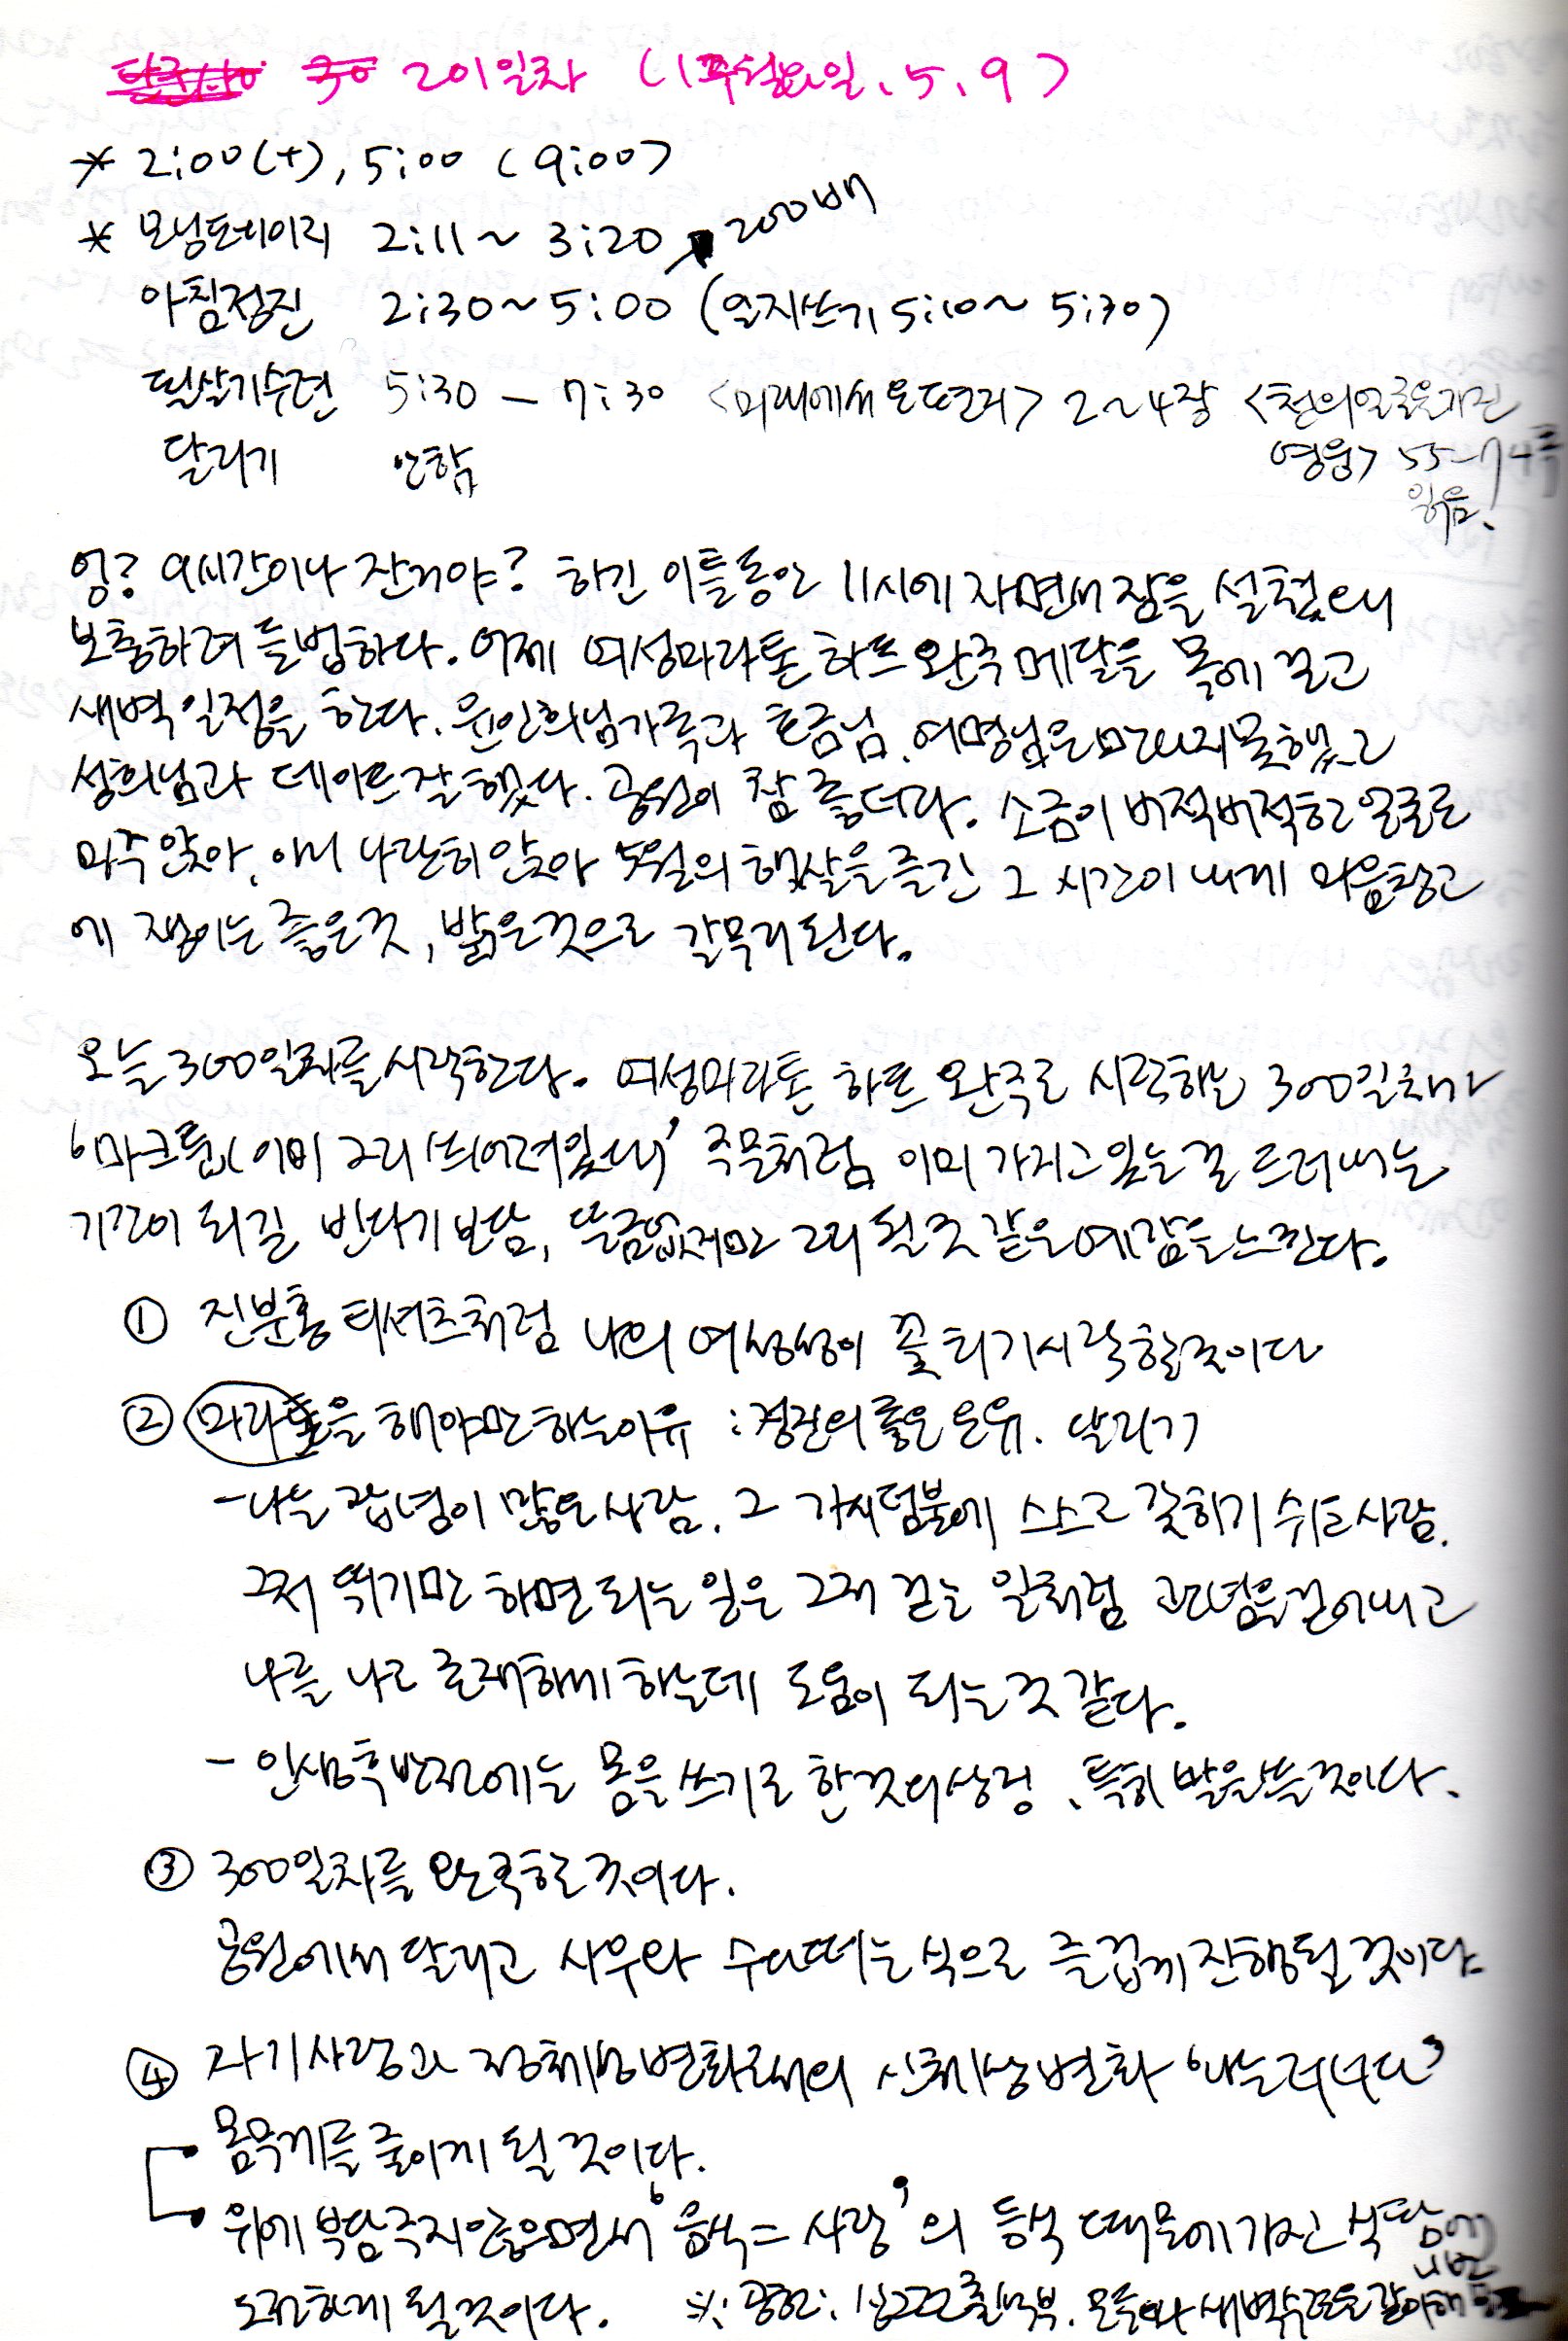 201일차 (1주 월요일, 5, 9)
* 2:00(+), 5:00 (9:00)
* 모닝페이지 2:11 ~ 3:20, 200배
아침정진 2:30 ~ 5:00 (일지쓰기 5:10 ~ 5:30)
필살기수련 5:30 - 7:30 <미래에서 온 편지> 2~4장 <천의 얼굴을 가진
영웅> 55-74쪽
읽음.
달리기 안함
잉? 9시간이나 잔거야? 하긴 이틀동안 11시에 자면서 잠을 설쳤으니
보충하려 들법하다. 어제 여성마라톤 하프 완주메달을 목에 걸고
새벽 일정을 한다. 님가족과 님, 여명님은 만나지못했고
성희님과 데이트 잘했다. 공원이 참 좋더라. 소금이 버적버적한 얼굴로
마주앉아, 아니 나란히 앉아 5월의 햇살을 즐긴 그 시간이 내게 마음창고
에 쟁이는 좋은것, 밝은것으로 갈무리된다.
오늘 300일차를 시작한다. 여성마라톤 하프 완주로 시작하는 300일차가
'마크툽(이미 그리 씌어져있다)' 주문처럼 이미 가지고있는걸 드러내는
기간이 되길 바란다기보담, 뜬금없지만 그리 될것 같은 예감을 느낀다.
① 진분홍 티셔츠처럼 나의 여성성이 꽃피기시작할것이다
② 마라톤을 해야만하는이유 : 정진의 좋은 은유. 달리기
- 나는 잡념이 많은 사람. 그 가시덤불에 스스로 갇히기 쉬운 사람.
그저 뛰기만 하면 되는 일은 그저 걷는 일처럼 관념을 걷어내고
나를 나로 존재하게 하는데 도움이 되는것 같다.
- 인생후반전에는 몸을 쓰기로 한것의 상징, 특히 발을 쓸것이다.
③ 300일차를 완주할 것이다.
공원에서 달리고 사우와 수다떠는 식으로 즐겁게 진행될 것이다.
④ 자기사랑과 정체성변화로서의 신체상 변화 '나는 러너다'
몸무게를 줄이게 될 것이다.
위에 부담주지않으면서 '음식=사랑'의 등식 때문에 가진 식탐에
도전하게 될것이다. ※ : 출석부. 모두와 새벽수련을 같이해